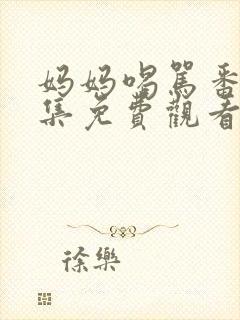 妈妈喝罵番
集免費觀看
徐樂